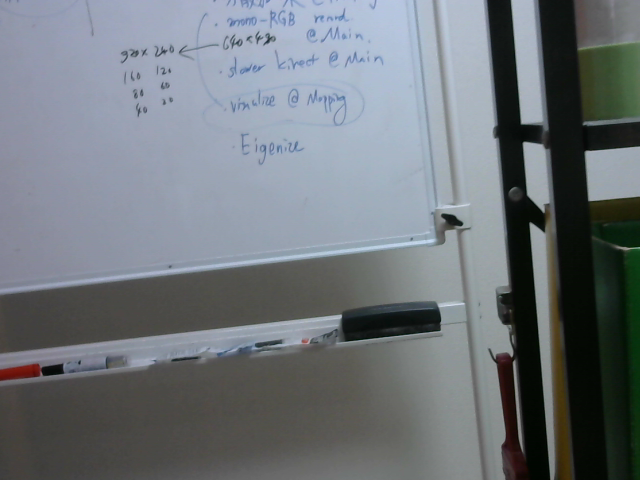 · mono-RGB
640×480 @ Main
320 × 240
160 120
80 60
40 30
· slower kinect @ Main
· visualize @ Mapping
· Eigenize